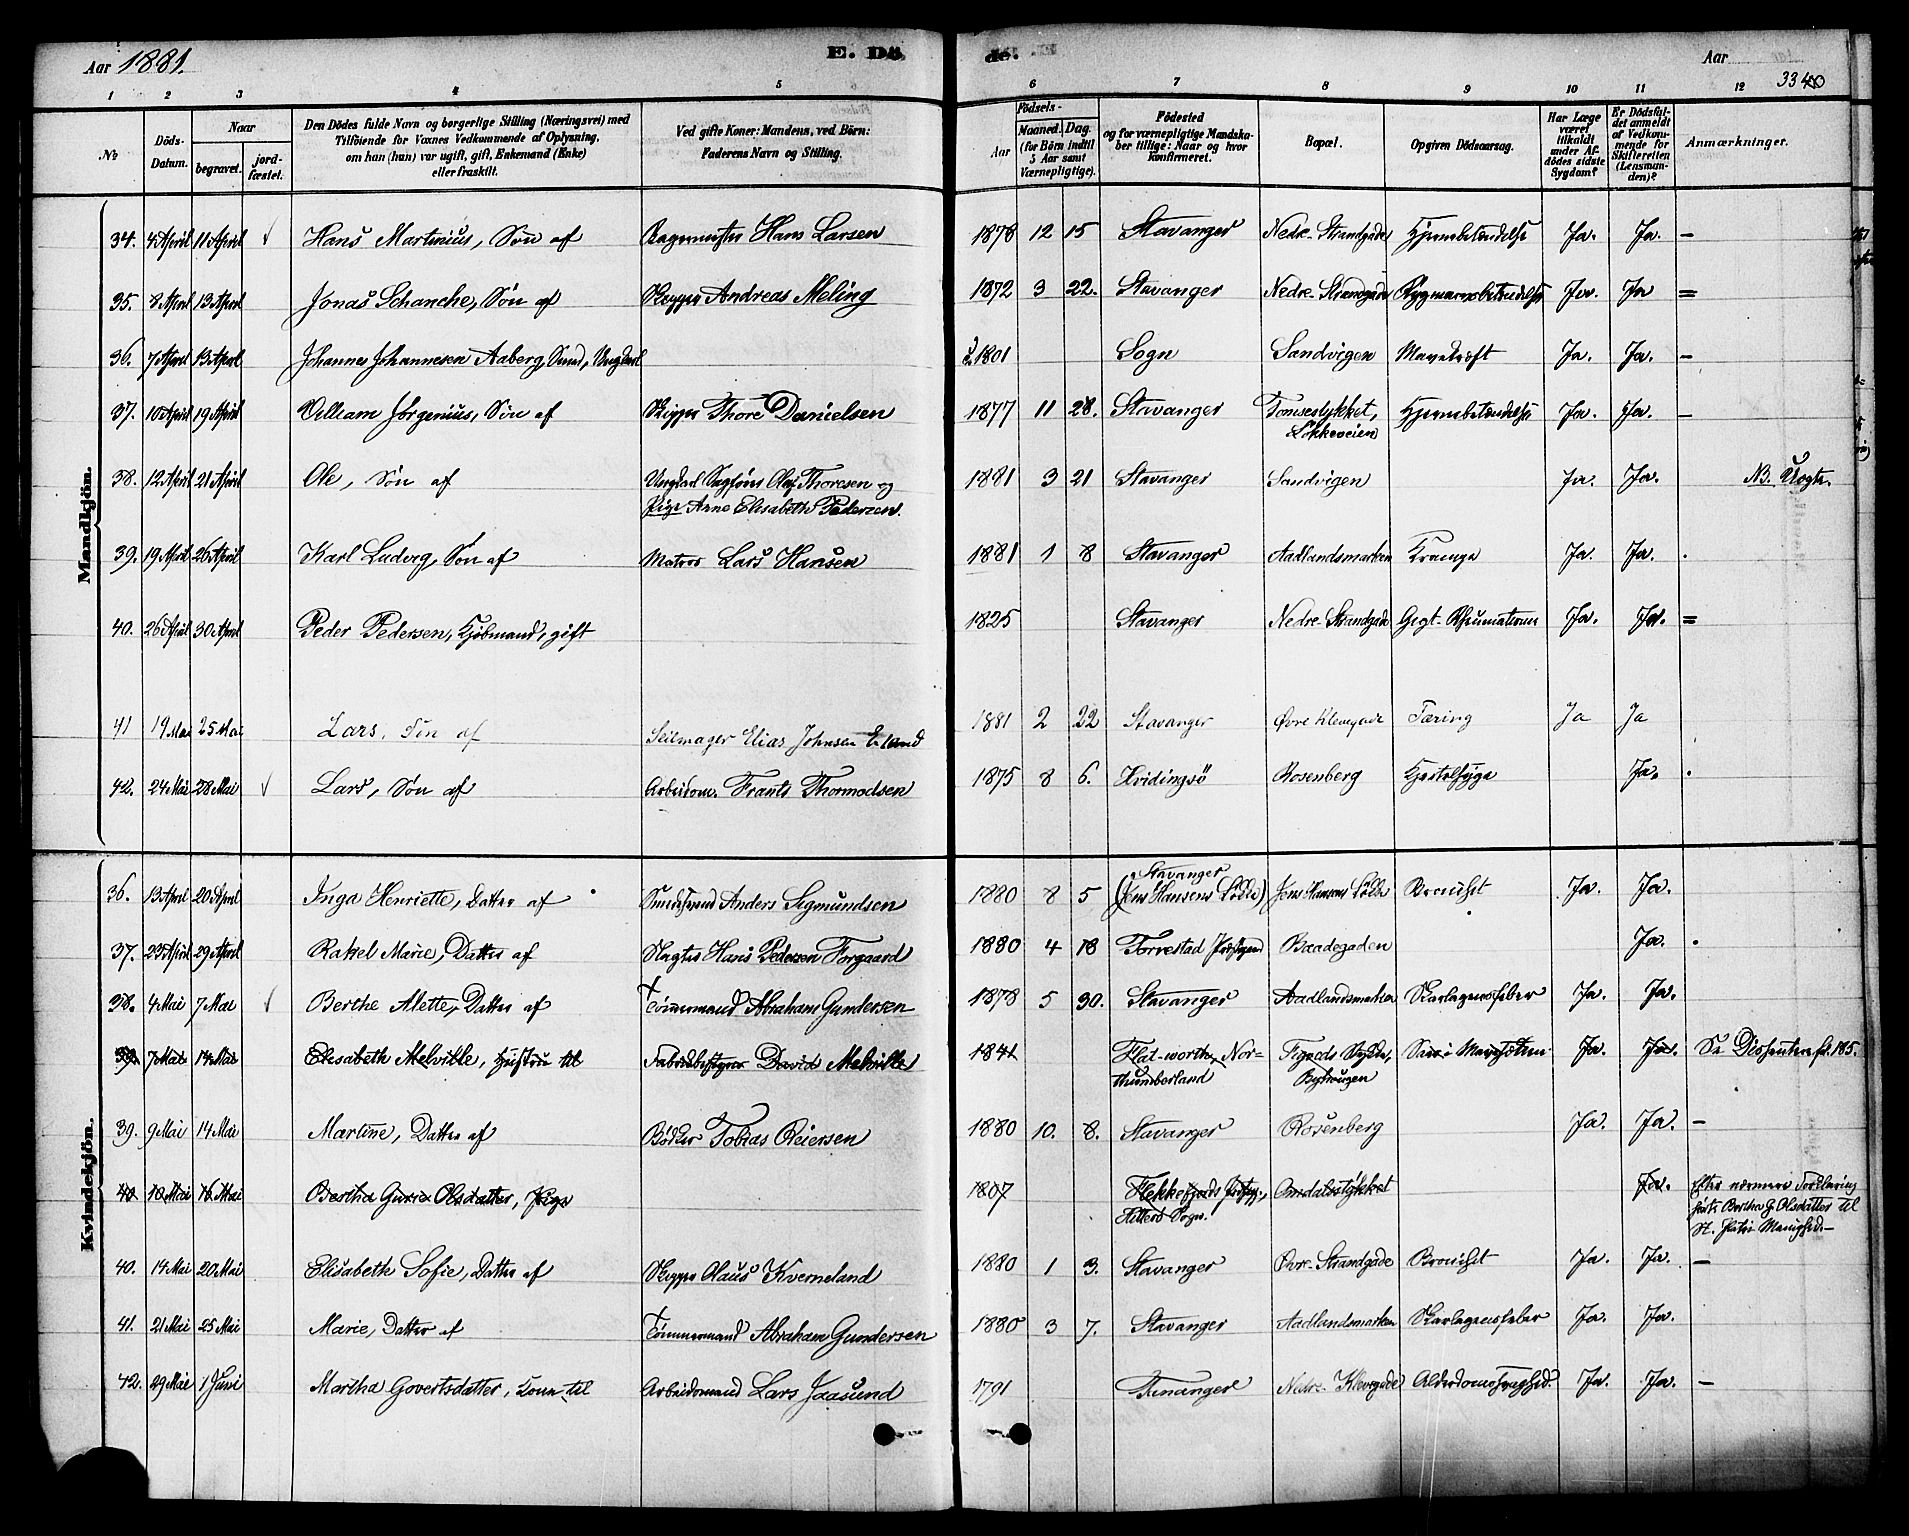 Aar 1881.
E. Dö
de.
Aar
3340
1 2 3 4 5 6 7 8 9 10 11 12
№
Döds-Datum.
Naar
begravet.
jord-fæstet.
Den Dödes fulde Navn og borgerlige Stilling (Næringsvei) med
Tilföiende for Voxnes Vedkommende af Oplysning,
om han (hun) var ugift, gift, Enkemand (Enke)
eller fraskilt.
Ved gifte Koner: Mandens, ved Börn:
Faderens Navn og Stilling.
Födsels-
Aar
Maaned. Dag.
(for Börn indtil
5 Aar samt
Værnepligtige).
Födested
og for værnepligtige Mandska-
ber tillige: Naar og hvor
konfirmeret.
Bopæl.
Opgiven Dödsaarsag.
Har Læge
været
tilkaldt
under Af-
dödes sidste
Sygdom?
Er Dödsfal-
det anmeldt
af Vedkom-
mende for
Skifteretten
(Lensman-
den)?
Anmærkninger.
Mandkjön.
34. 4 April 11 April √ Hans Martinius, Søn af Bagermester Hans Larsen 1878 12 15 Stavanger Nedre Strandgade Hjernebetændelse Ja. Ja. —
35. 8 April 13 April Jonas Schanche, Søn af Skipper Andreas Meling 1872 3 22. Stavanger Nedre Strandgade Rygmarvsbetændelse Ja. Ja =
36. 7 April 13 April Johannes Johannesen Aaberg, Smed, Ungkarl 1801 Sogn Sandvigen Mavekræft Ja. Ja. —
37. 10 April 19 April William Jørgenius, Søn af Skipper Thore Danielsen 1877 11 28. Stavanger Tomsestykket, Hjernebetændelse Ja. Ja. —
Løkkeveien
38. 12 April 21 April Ole, Søn af Ungkarl Olaf Thoresen og 1881 3 21 Stavanger Sandvigen Ja. Ja. NB. Uægte.
Pige Anne Elisabeth Pedersen.
39. 19 April 26 April Karl Ludvig, Søn af Matros Lars Hansen 1881 1 8 Stavanger Aadlandsmarken Krampe Ja. Ja.
40. 26 April 30 April Peder Pedersen, Kjøbmand, gift 1825 Stavanger Nedre Strandgade Gigt- Rheumatisme Ja. Ja. =
41 19 Mai 25 Mai Lars, Søn af Seilmager Elias Johnsen Erland 1881 2 22 Stavanger Øvre Klevegade Tæring Ja Ja
42. 24 Mai 28 Mai √ Lars, Søn af Arbeidsm. Frants Thormodsen 1875 8 6. Hvidingsö Rosenberg Kjertelsyge Ja.
Kvindekjön.
Stavanger
36. 13 April 20 April Inga Henriette, Datter af Anders Sigmundsen 1880 8 5 (Jens Hansens Lökke) Jens Hansens Lökke Bronchit Ja. Ja.
37. 23 April 29 April Rakel Marie, Datter af Slagter Hans Pedersen Forgaard 1880 4 18 Torvestad Prstgjeld Baadegaden Ja.
38. 4 Mai 7 Mai √ Berthe Alette, Datter af Tömmermand Abraham Gundersen 1878 5 30. Stavanger Aadlandsmarken Skarlagensfeber Ja. Ja.
39. 7 Mai 14 Mai Elisabeth Melville, Hustru til Fabrikbestyrer David Melville 1841 Flat-worth, Nor- Saar i Mavesækken Ja. Ja. Se Dissentere f. 185.
thumberland Byhaugen
39. 9 Mai 14 Mai Martine, Datter af Bødker Tobias Reiersen 1880 10. 8. Stavanger Rosenberg Ja. Ja. —
40 10 Mai 16 Mai Bertha Guria Olsdatter, Pige 1807 Flekkefjords Prstgj., Omdalsstykket Ja. Efter nærmere Forklaring
Hitterö Sogn. Bertha G. Olsdatter til
St. Petri Menighed.—
40. 14 Mai 20 Mai Elisabeth Sofie, Datter af Skipper Olaus Kverneland 1880 1 3. Stavanger Øvre Strandgade Bronchit Ja. Ja. —
41. 21 Mai 25 Mai Marie, Datter af Tömmermand Abraham Gundersen 1880 3 7. Stavanger Aadlandsmarken Skarlagensfeber Ja. Ja.
42. 29 Mai 1 Juni Martha Govertsdatter, Kone til Arbeidsmand Lars Jaasund 1791 Finanger Nedre Klevegade Alderdomssvaghed. Ja. Ja. —